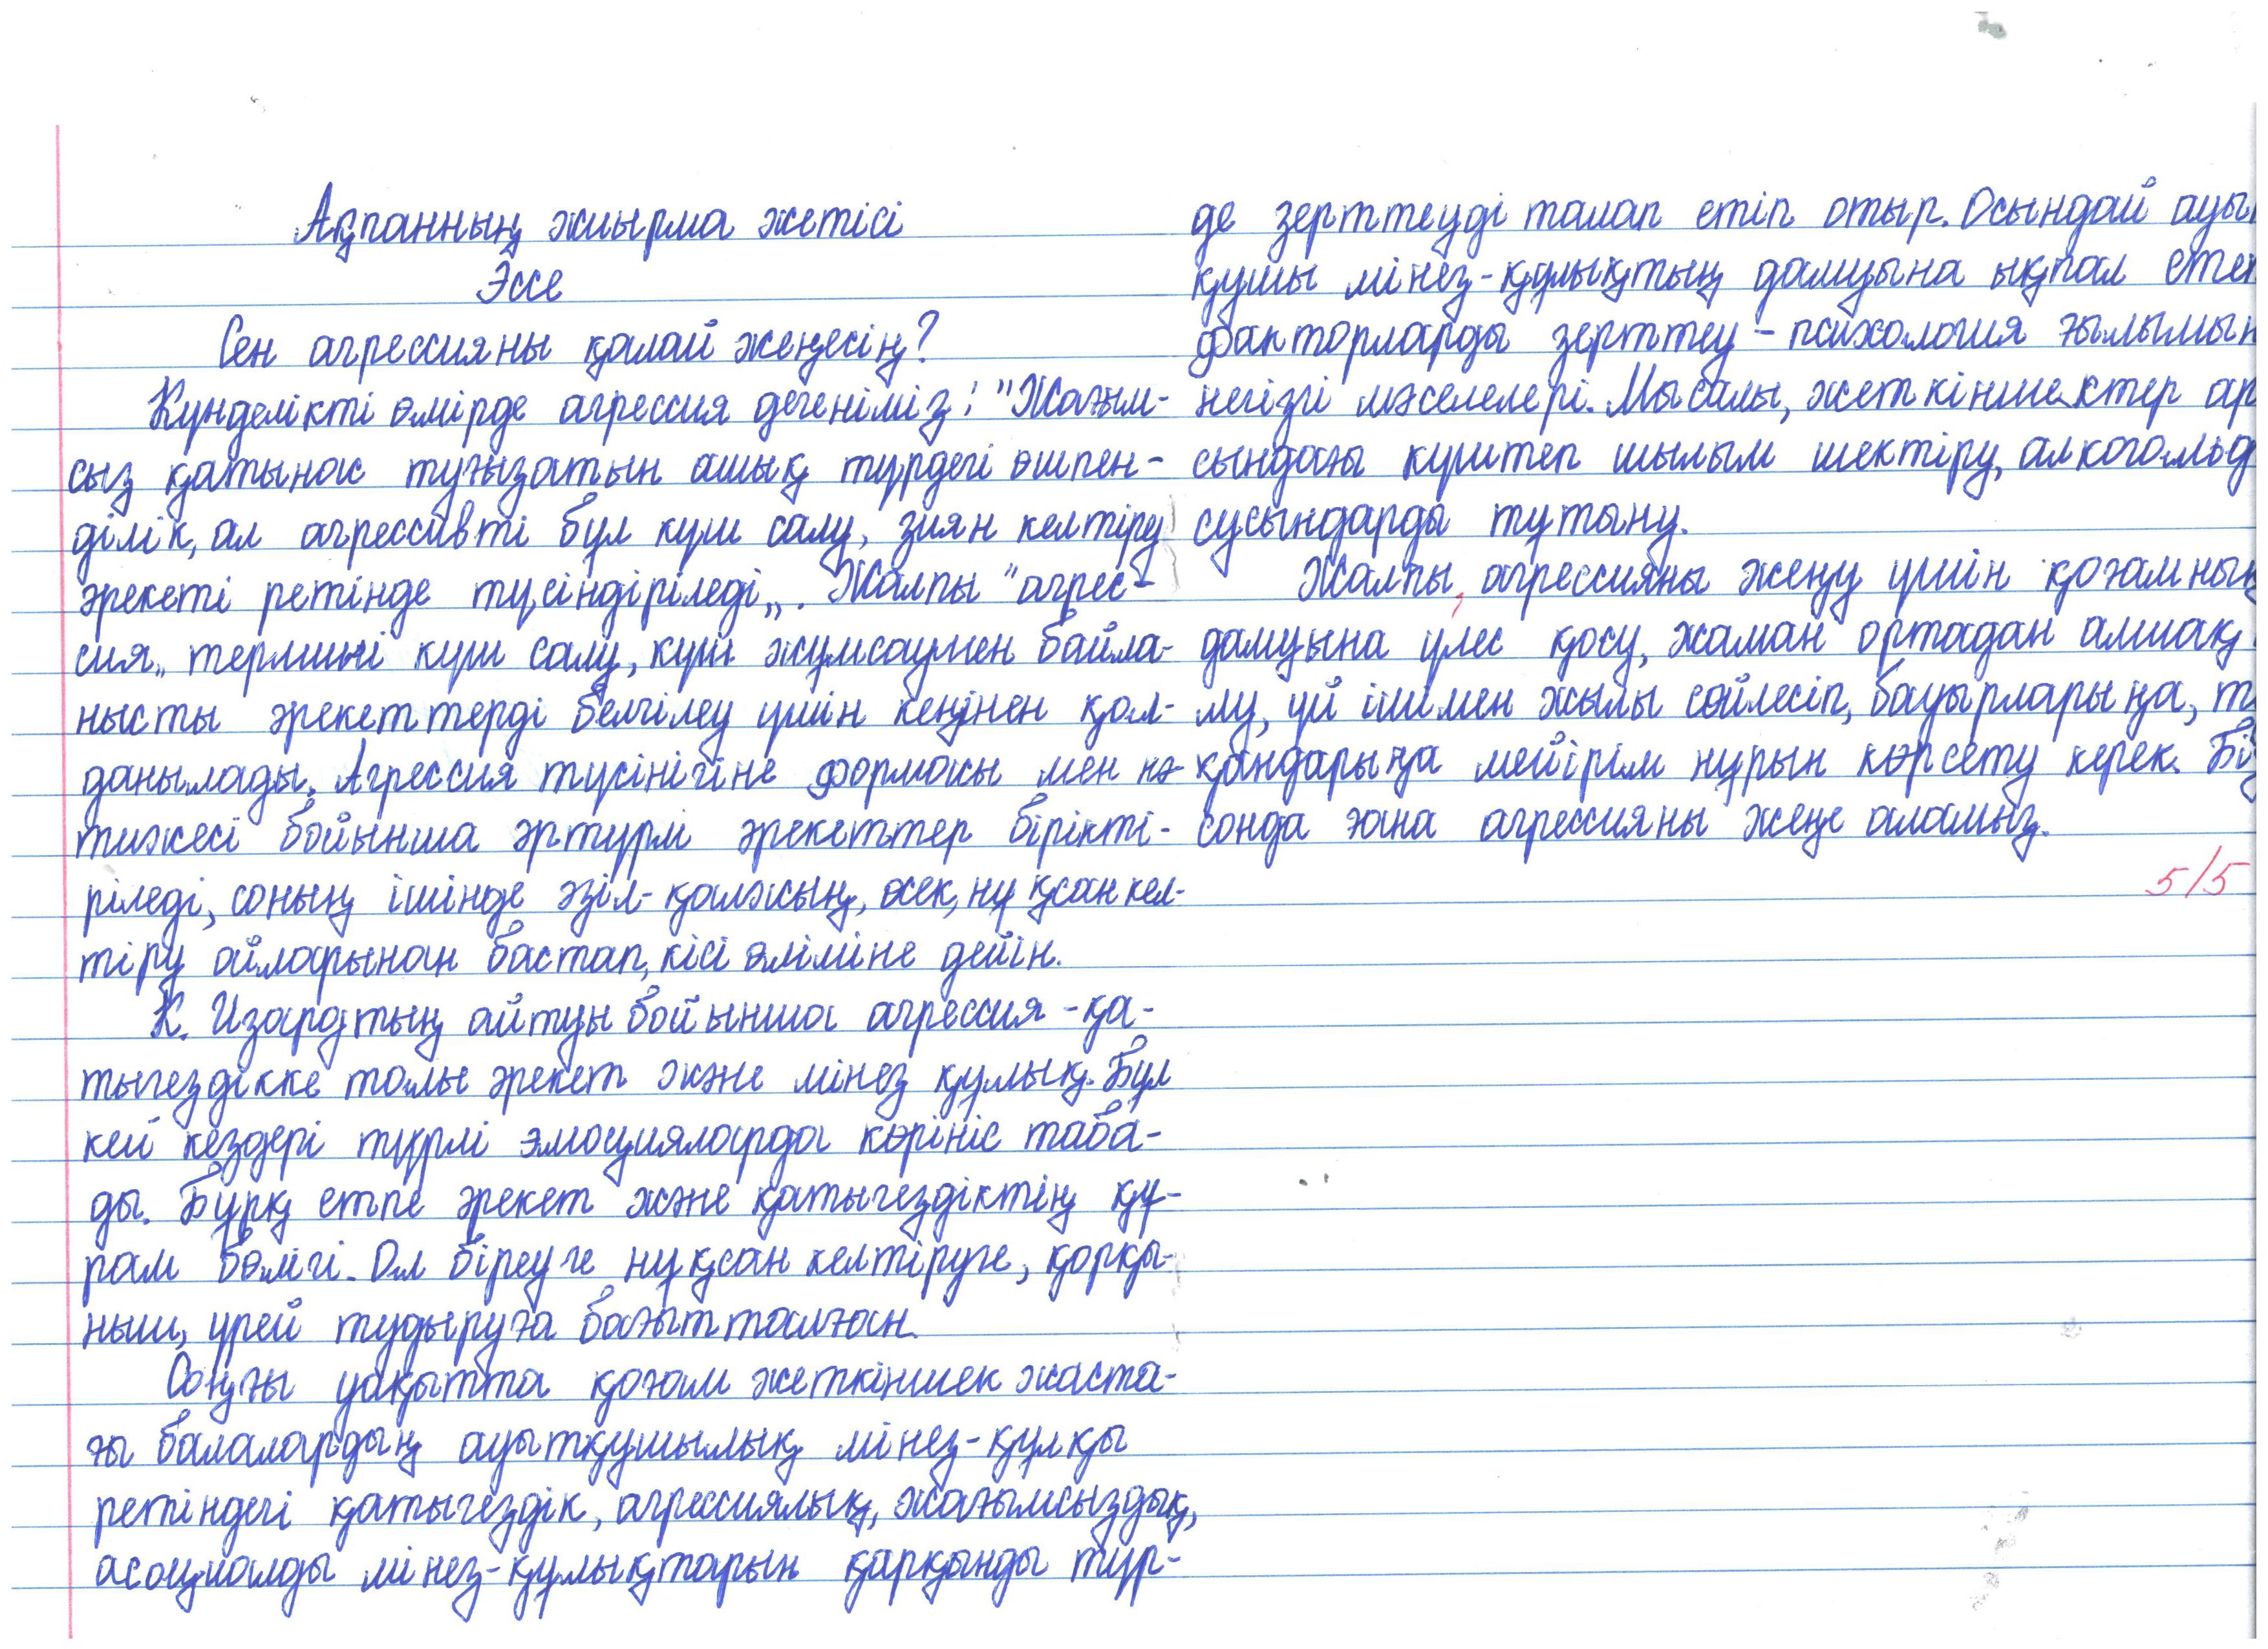 Ақпанның жиырма жетісі
Эссе
Сен агрессияны қалай жеңесің?
Күнделікті өмірде агрессия дегеніміз: "Жағым-
сыз қатынас туғызатын ашық түрдегі өшпен-
ділік, ал агрессивті бұл күш салу, зиян келтіру
әрекеті ретінде түсіндіріледі„. Жалпы "агрес-
сия„ термині күш салу, күш жұмсаумен байла-
нысты әрекеттерді белгілеу үшін кеңінен қол-
данылады. Агрессия түсінігіне формасы мен нә-
тижесі бойынша әртүрлі әрекеттер бірікті-
ріледі, соның ішінде әзіл-қалжың, өсек, нұқсан кел-
тіру ойларынан бастап, кісі өліміне дейін.
К. Изардтың айтуы бойынша агрессия - қа-
тыгездікке толы әрекет және мінез құлық. Бұл
кей кездері түрлі эмоцияларда көрініс таба-
ды. Бұрқ етпе әрекет және қатыгездіктің құ-
рам бөлігі. Ол біреуге нұқсан келтіруге, қорқы-
ныш, үрей тудыруға бағытталған.
Соңғы уақытта қоғам жеткіншек жаста-
ғы балалардың ауытқушылық мінез-құлқы
ретіндегі қатыгездік, агрессиялық, жағымсыздық,
асоциалды мінез-құлықтарын қарқынды түр-
де зерттеуді талап етіп отыр. Осындай ауы
қушы мінез-құлықтың дамуына ықпал ете
факторларды зерттеу - психология ғылымын
негізгі мәселелері. Мысалы, жеткіншектер ар
сындағы күштеп шылым шектіру, алкогольд
сусындарды тутыну.
Жалпы, агрессияны жеңу үшін қоғамның
дамуына үлес қосу, жаман ортадан алшақ
лу, үй ішімен жылы сөйлесіп, бауырларыңа, т
қандарыңа мейірім нұрын көрсету керек. Біз
сонда ғана агрессияны жеңе аламыз.
5/5